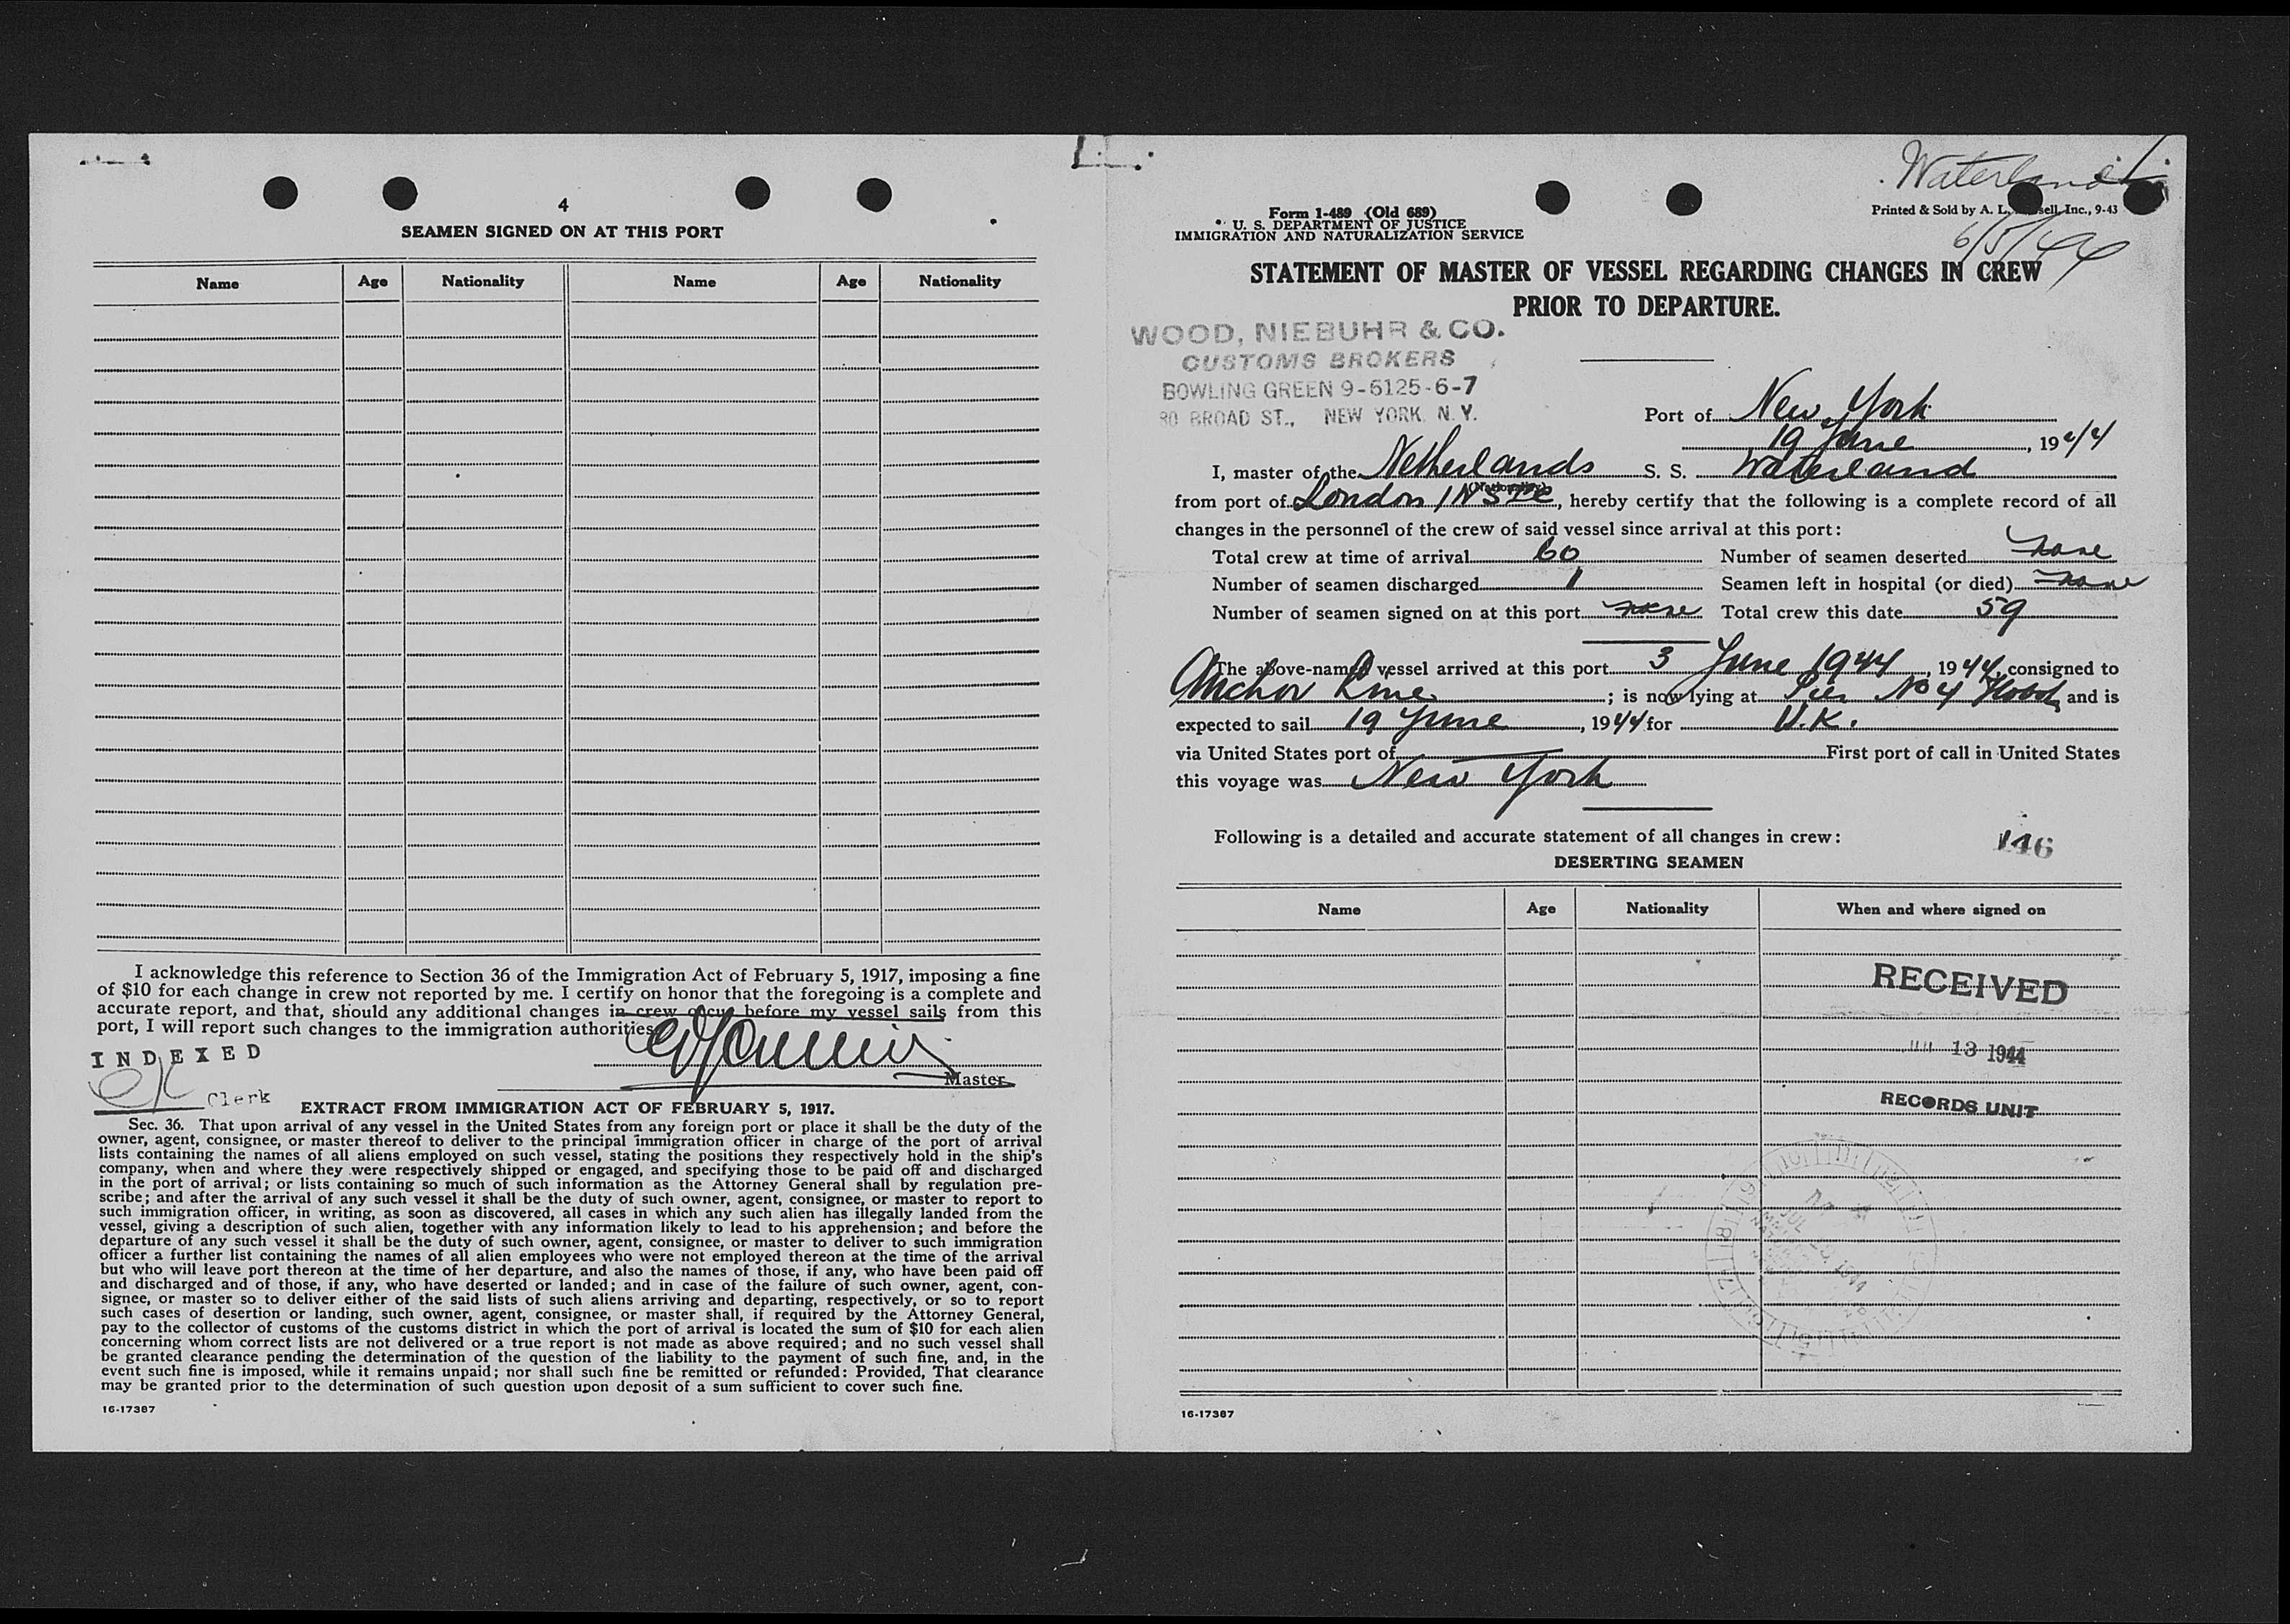 4
SEAMEN SIGNED ON AT THIS PORT
Name Age Nationality Name Age Nationality
I acknowledge this reference to Section 36 of the Immigration Act of February 5, 1917, imposing a fine
of $10 for each change in crew not reported by me. I certify on honor that the foregoing is a complete and
accurate report, and that, should any additional changes in crew occur before my vessel sails from this
port, I will report such changes to the immigration authorities.
Master
INDEXED
Clerk
EXTRACT FROM IMMIGRATION ACT OF FEBRUARY 5, 1917.
Sec. 36. That upon arrival of any vessel in the United States from any foreign port or place it shall be the duty of the
owner, agent, consignee, or master thereof to deliver to the principal immigration officer in charge of the port of arrival
lists containing the names of all aliens employed on such vessel, stating the positions they respectively hold in the ship's
company, when and where they were respectively shipped or engaged, and specifying those to be paid off and discharged
in the port of arrival; or lists containing so much of such information as the Attorney General shall by regulation pre-
scribe; and after the arrival of any such vessel it shall be the duty of such owner, agent, consignee, or master to report to
such immigration officer, in writing, as soon as discovered, all cases in which any such alien has illegally landed from the
vessel, giving a description of such alien, together with any information likely to lead to his apprehension; and before the
departure of any such vessel it shall be the duty of such owner, agent, consignee, or master to deliver to such immigration
officer a further list containing the names of all alien employees who were not employed thereon at the time of the arrival
but who will leave port thereon at the time of her departure, and also the names of those, if any, who have been paid off
and discharged and of those, if any, who have deserted or landed; and in case of the failure of such owner, agent, con-
signee, or master so to deliver either of the said lists of such aliens arriving and departing, respectively, or so to report
such cases of desertion or landing, such owner, agent, consignee, or master shall, if required by the Attorney General,
pay to the collector of customs of the customs district in which the port of arrival is located the sum of $10 for each alien
concerning whom correct lists are not delivered or a true report is not made as above required; and no such vessel shall
be granted clearance pending the determination of the question of the liability to the payment of such fine, and, in the
event such fine is imposed, while it remains unpaid; nor shall such fine be remitted or refunded: Provided, That clearance
may be granted prior to the determination of such question upon deposit of a sum sufficient to cover such fine.
16-17387
Waterland
Form 1-489 (Old 689)
U. S. DEPARTMENT OF JUSTICE
IMMIGRATION AND NATURALIZATION SERVICE
Printed & Sold by A. L. Inc., 9-43
6/5/44
STATEMENT OF MASTER OF VESSEL REGARDING CHANGES IN CREW
PRIOR TO DEPARTURE.
WOOD, NIEBUHR & CO.
CUSTOMS BROKERS
BOWLING GREEN 9-6125-6-7
80 BROAD ST., NEW YORK, N. Y.
Port of New York
19 June, 1944
I, master of the Netherlands S. S. Waterland
(Nationality)
from port of London, hereby certify that the following is a complete record of all
changes in the personnel of the crew of said vessel since arrival at this port:
Total crew at time of arrival 60 Number of seamen deserted none
Number of seamen discharged 1 Seamen left in hospital (or died) none
Number of seamen signed on at this port none Total crew this date 59
The above-named vessel arrived at this port 3 June 1944, 1944, consigned to
Anchor Line; is now lying at Pier No 4 and is
expected to sail 19 June, 1944 for U.K.
via United States port of First port of call in United States
this voyage was New York
Following is a detailed and accurate statement of all changes in crew:
146
DESERTING SEAMEN
Name Age Nationality When and where signed on
RECEIVED
13 1944
RECORDS UNIT
16-17387